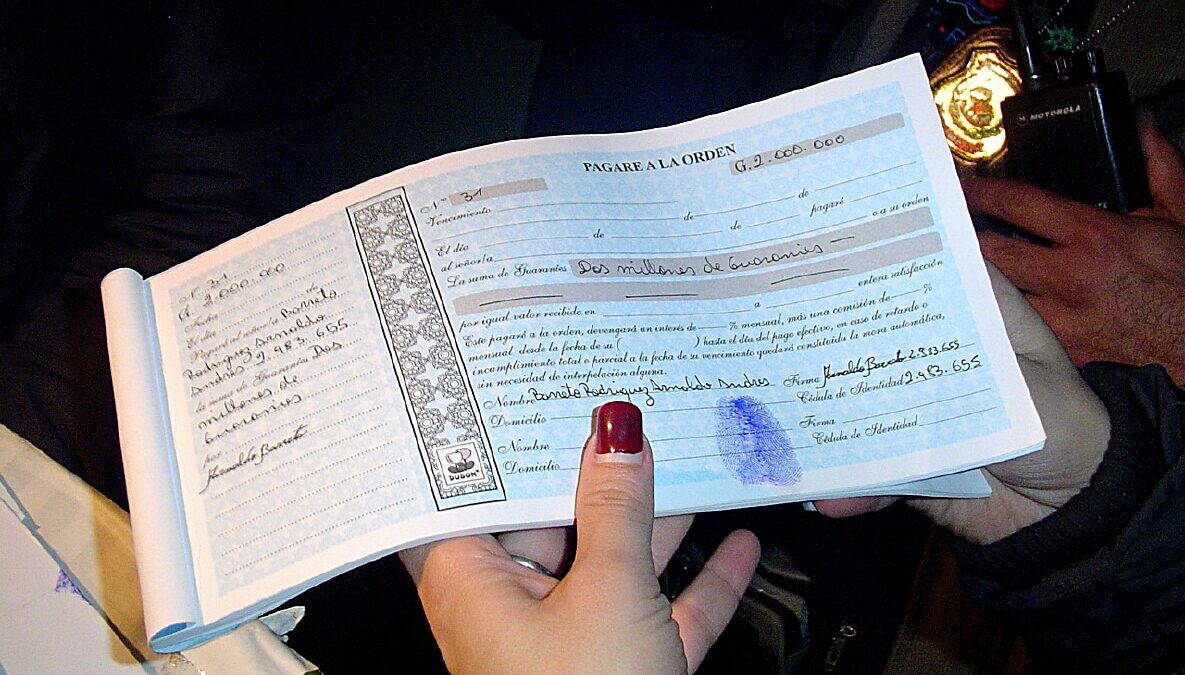 Nº 31
G. 2.000.000
Fecha de
El día
Pagaré al señor/a Barreto
Rodriguez Arnaldo
Andres 2.983.655
la suma de Guaraníes Dos
millones de
Guaranies
por
Arnaldo Barreto
DUDON
PAGARE A LA ORDEN
Nº 31 G. 2.000.000
Vencimiento de de
El día de de pagaré
al señor/a o a su orden
La suma de Guaraníes Dos millones de Guaranies —
por igual valor recibido en a entera satisfacción
Este pagaré a la orden, devengará un interés de % mensual, más una comisión de %
mensual desde la fecha de su ( ) hasta el día del pago efectivo, en caso de retardo o
incumplimiento total o parcial a la fecha de su vencimiento quedará constituida la mora automática,
sin necesidad de interpelación alguna.
Nombre Barreto Rodriguez Arnaldo Andres Firma Arnaldo Barreto 2.983.655
Domicilio Cédula de Identidad 2.983.655
Nombre Firma
Domicilio Cédula de Identidad
MOTOROLA